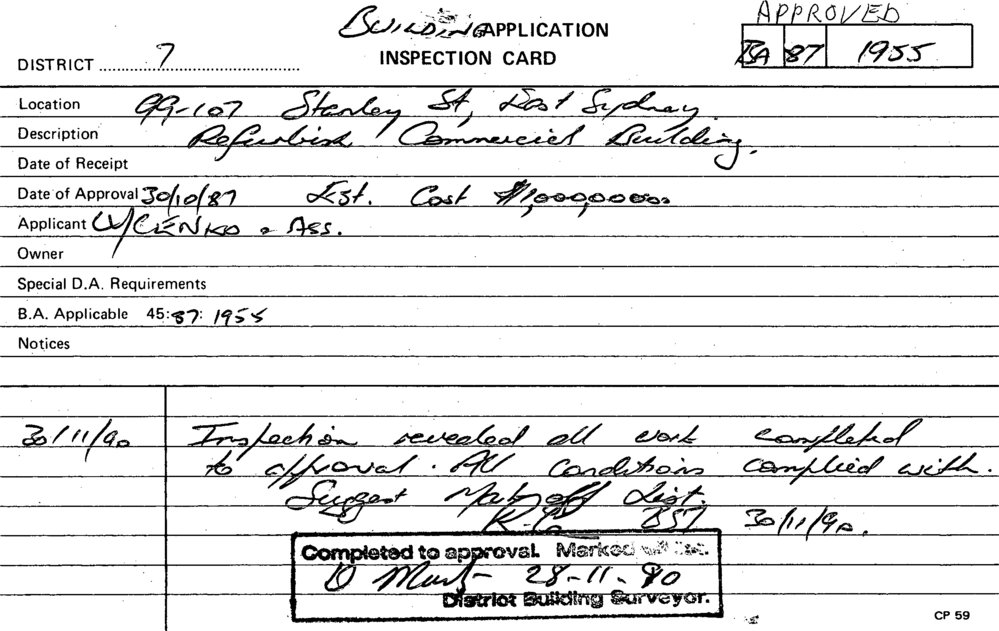 BUILDING APPLICATION
INSPECTION CARD
APPROVED
BA 87 1955
DISTRICT 7
Location 99-107 Stanley St, East Sydney
Description Refurbish Commercial Building.
Date of Receipt
Date of Approval 30/10/87 Est. Cost $1,000,000.00
Applicant & Ass.
Owner
Special D.A. Requirements
B.A. Applicable 45:87: 1955
Notices
30/11/90 Inspection revealed all work completed
to approval. All conditions complied with.
Suggest Mark off List.
30/11/90.
Completed to approval. Marked off list.
28-11-90
District Building Surveyor.
CP 59